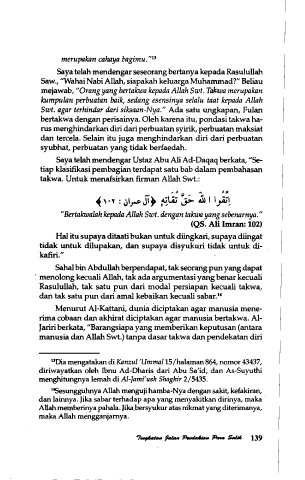 merupakan cahaya bagimu."¹³
Saya telah mendengar seseorang bertanya kepada Rasulullah
Saw., "Wahai Nabi Allah, siapakah keluarga Muhammad?" Beliau
mejawab, "Orang yang bertakwa kepada Allah Swt. Takwa merupakan
kumpulan perbuatan baik, sedang esensinya selalu taat kepada Allah
Swt. agar terhindar dari siksaan-Nya." Ada satu ungkapan, Fulan
bertakwa dengan perisainya. Oleh karena itu, pondasi takwa ha-
rus menghindarkan diri dari perbuatan syirik, perbuatan maksiat
dan tercela. Selain itu juga menghindarkan diri dari perbuatan
syubhat, perbuatan yang tidak berfaedah.
Saya telah mendengar Ustaz Abu Ali Ad-Daqaq berkata, "Se-
tiap klasifikasi pembagian terdapat satu bab dalam pembahasan
takwa. Untuk menafsirkan firman Allah Swt.:
اِتَّقُوا اللهَ حَقَّ تُقَاتِهِ ﴿آل عمران : ١٠٢﴾
"Bertakwalah kepada Allah Swt. dengan takwa yang sebenarnya."
(QS. Ali Imran: 102)
Hal itu supaya ditaati bukan untuk diingkari, supaya diingat
tidak untuk dilupakan, dan supaya disyukuri tidak untuk di-
kafiri."
Sahal bin Abdullah berpendapat, tak seorang pun yang dapat
menolong kecuali Allah, tak ada argumentasi yang benar kecuali
Rasulullah, tak satu pun dari modal persiapan kecuali takwa,
dan tak satu pun dari amal kebaikan kecuali sabar.¹⁴
Menurut Al-Kattani, dunia diciptakan agar manusia mene-
rima cobaan dan akhirat diciptakan agar manusia bertakwa. Al-
Jariri berkata, "Barangsiapa yang memberikan keputusan (antara
manusia dan Allah Swt.) tanpa dasar takwa dan pendekatan diri
¹³Dia mengatakan di Kanzul 'Ummal 15/halaman 864, nomor 43437,
diriwayatkan oleh Ibnu Ad-Dharis dari Abu Sa'id, dan As-Suyuthi
menghitungnya lemah di Al-Jami'ush Shaghir 2/5435.
¹⁴Sesungguhnya Allah menguji hamba-Nya dengan sakit, kefakiran,
dan lainnya. Jika sabar terhadap apa yang menyakitkan dirinya, maka
Allah memberinya pahala. Jika bersyukur atas nikmat yang diterimanya,
maka Allah mengganjarnya.
Tingkatan Jalan Pendakian Para Salik 139